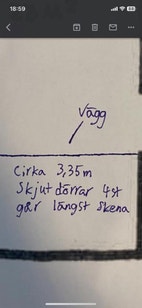 18:59
Vägg
Cirka 3,35m
Skjutdörrar 4st
går längst skena